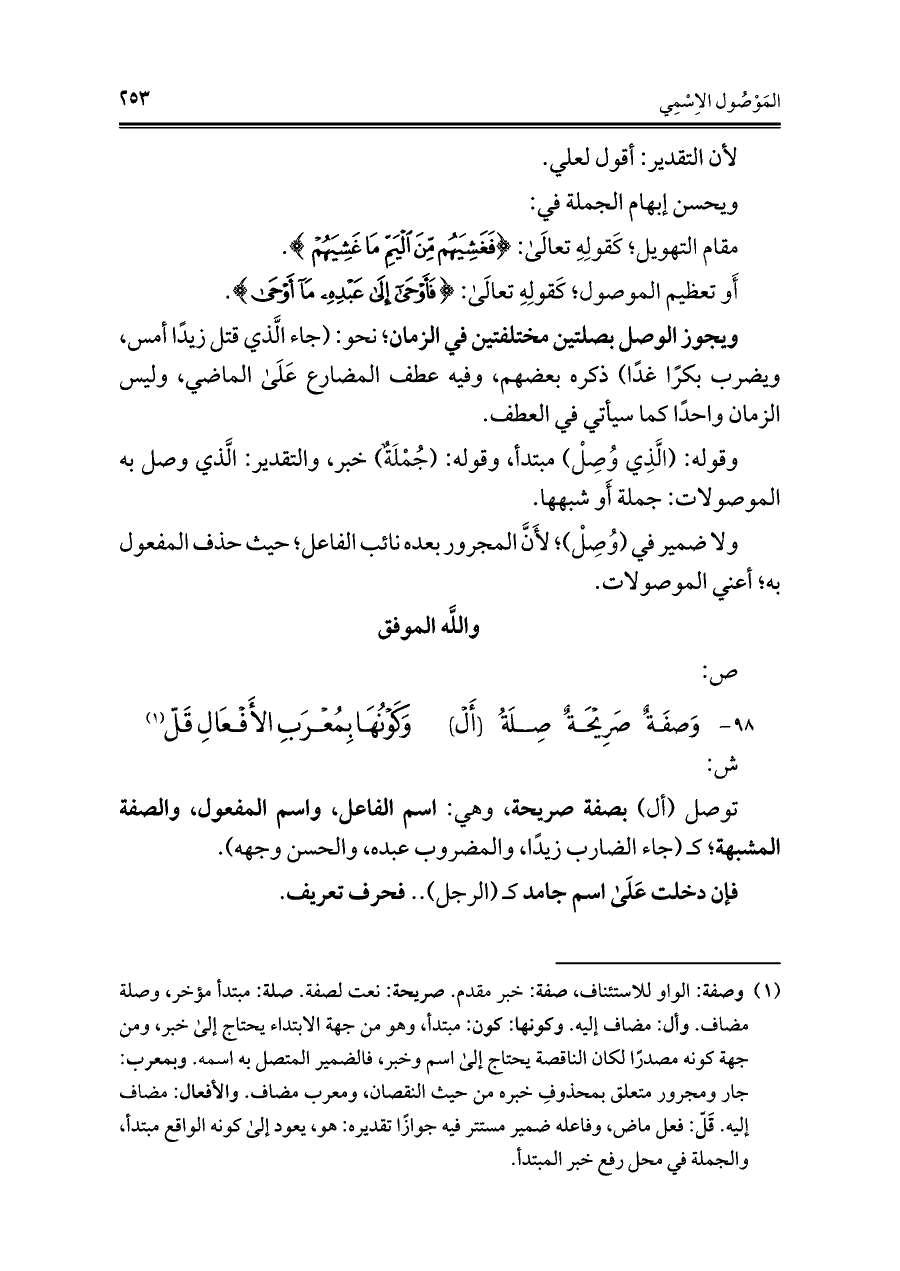 المَوْصُول الاِسْمِي ٢٥٣
لأن التقدير: أقول لعلي.
ويحسن إبهام الجملة في:
مقام التهويل؛ كَقولِهِ تعالَىٰ: ﴿فَغَشِيَهُم مِّنَ ٱلْيَمِّ مَا غَشِيَهُمْ﴾.
أَو تعظيم الموصول؛ كَقولِهِ تعالَىٰ: ﴿فَأَوْحَىٰٓ إِلَىٰ عَبْدِهِۦ مَآ أَوْحَىٰ﴾.
ويجوز الوصل بصلتين مختلفتين في الزمان؛ نحو: (جاء الَّذي قتل زيدًا أمس،
ويضرب بكرًا غدًا) ذكره بعضهم، وفيه عطف المضارع عَلَىٰ الماضي، وليس
الزمان واحدًا كما سيأتي في العطف.
وقوله: (الَّذِي وُصِلْ) مبتدأ، وقوله: (جُمْلَةٌ) خبر، والتقدير: الَّذي وصل به
الموصولات: جملة أَو شبهها.
ولا ضمير في (وُصِلْ)؛ لأَنَّ المجرور بعده نائب الفاعل؛ حيث حذف المفعول
به؛ أعني الموصولات.
واللَّه الموفق
ص:
٩٨- وَصِفَةٌ صَرِيْحَةٌ صِلَةُ (أَلْ) وَكَوْنُهَا بِمُعْرَبِ الأَفْعَالِ قَلّ(١)
ش:
توصل (أل) بصفة صريحة، وهي: اسم الفاعل، واسم المفعول، والصفة
المشبهة؛ كـ (جاء الضارب زيدًا، والمضروب عبده، والحسن وجهه).
فإن دخلت عَلَىٰ اسم جامد كـ (الرجل).. فحرف تعريف.
(١) وصفة: الواو للاستئناف، صفة: خبر مقدم. صريحة: نعت لصفة. صلة: مبتدأ مؤخر، وصلة
مضاف. وأل: مضاف إليه. وكونها: كون: مبتدأ، وهو من جهة الابتداء يحتاج إلىٰ خبر، ومن
جهة كونه مصدرًا لكان الناقصة يحتاج إلىٰ اسم وخبر، فالضمير المتصل به اسمه. وبمعرب:
جار ومجرور متعلق بمحذوفِ خبره من حيث النقصان، ومعرب مضاف. والأفعال: مضاف
إليه. قَلّ: فعل ماض، وفاعله ضمير مستتر فيه جوازًا تقديره: هو، يعود إلىٰ كونه الواقع مبتدأ،
والجملة في محل رفع خبر المبتدأ.